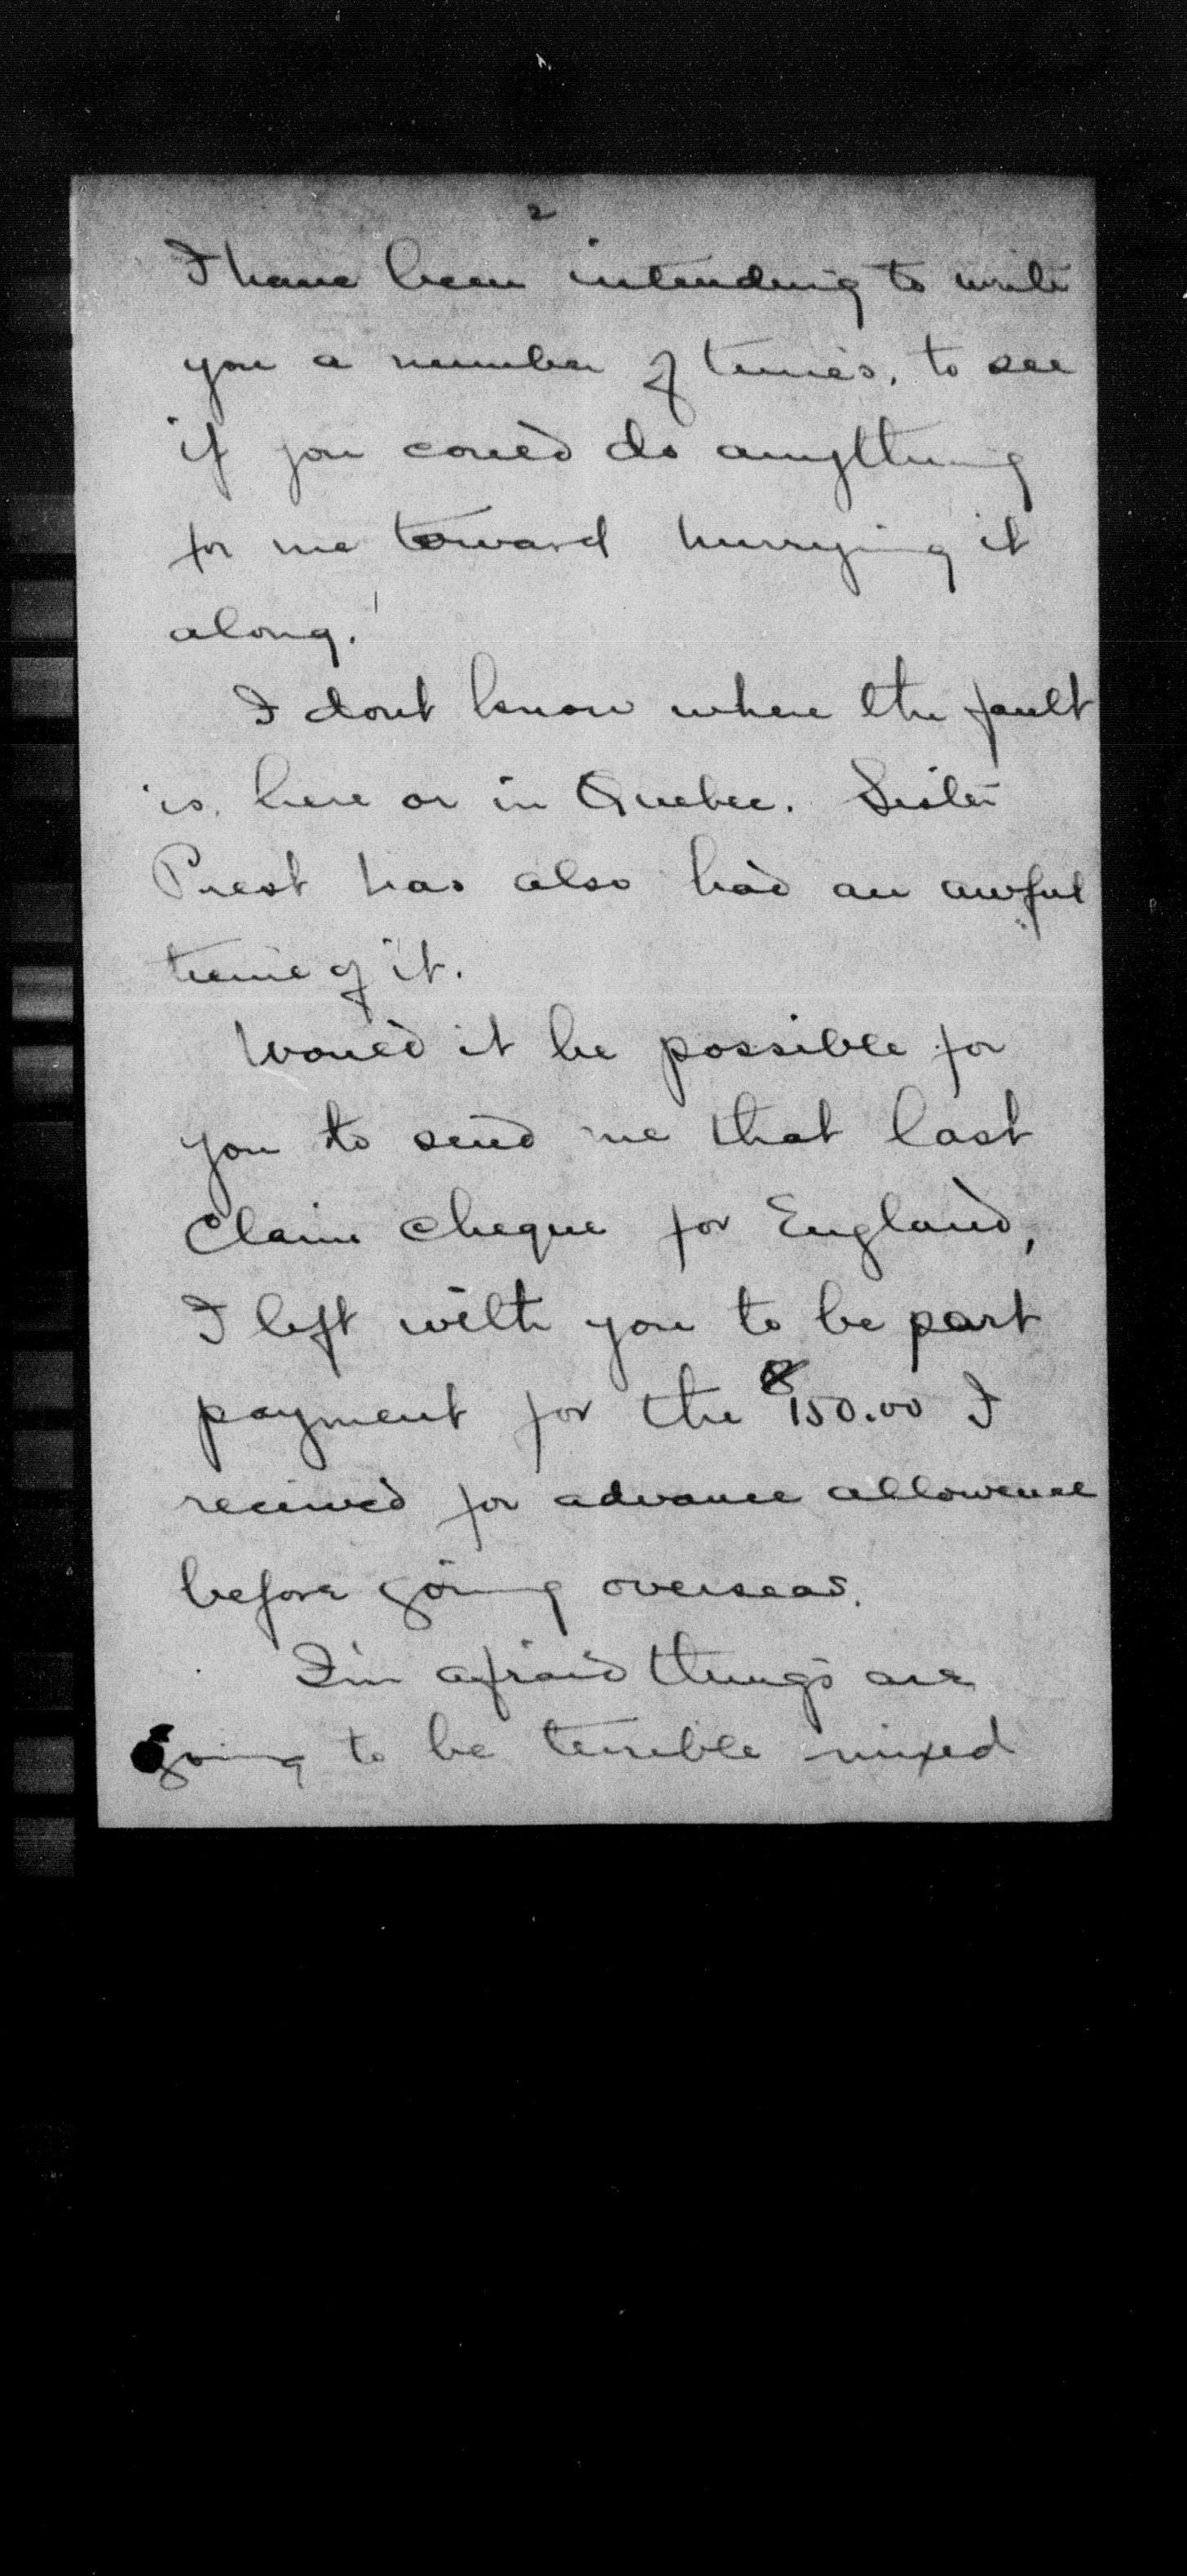 2
I have been intending to write
you a number of times, to see
if you could do anything
for me toward hurrying it
along.
I dont know where the fault
is, here or in Quebec. Sister
Prest has also had an awful
time of it.
Would it be possible for
you to send me that last
Claim cheque for England,
I left with you to be part
payment for the $150.00 I
received for advance allowence
before going overseas.
I'm afraid things are
going to be terrible mixed